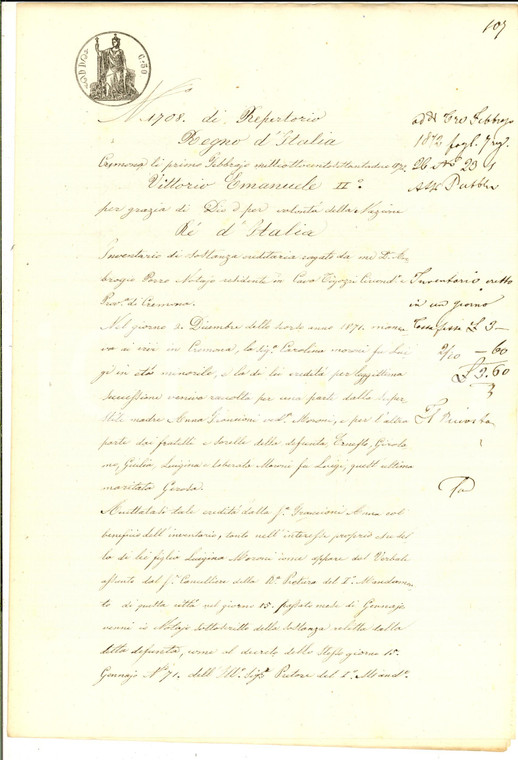 107
C. 50
N. 1708. di Repertorio
Regno d'Italia
Cremona li primo Febbrajo milleottocentosettantadue 1872.
Vittorio Emanuele II°.
per grazia di Dio e per volontà della Nazione
Re d'Italia
Inventario di sostanza ereditaria rogato da me Dr. Am-
brogio Porro Notajo residente in Cava Tigozzi Circond.o e
Prov.a di Cremona.
Nel giorno 3. Dicembre dello scorso anno 1871. manca-
va ai vivi in Cremona, la Sig.a Carolina Moroni fu Lui-
gi in età minorile, e la di lei eredità per legittima
successione veniva raccolta per una parte dalla super-
stite madre Anna Ved.a Moroni, e per l'altra
parte dai fratelli e sorelle della defunta Ernesto, Girola-
mo, Giulia, Luigina e Moroni fu Luigi, quest'ultima
maritata Gerosa.
tale eredità dalla S.a Anna col
beneficio dell'inventario, tanto nell'interesse proprio che del-
la di lei figlia Luigina Moroni come appare dal Verbale
assunto dal S.r Cancelliere della R.a Pretura del I.o Mandamen-
to di questa città nel giorno 15. passato mese di Gennajo
venni io Notajo sottoscritto della sostanza relitta dalla
detta defunta, come al decreto dello stesso giorno 15.
Gennajo N.o 71. dell'Ill.o Sig.r Pretore del I.o Mand.o
Tre Febbrajo
1872 fogl.
26 N.o 29
Atti Pubbli
Inventario eretto
in un giorno
Tassa fissa £ 3-
2/10 -60
£ 3.60
Il Ricevitore